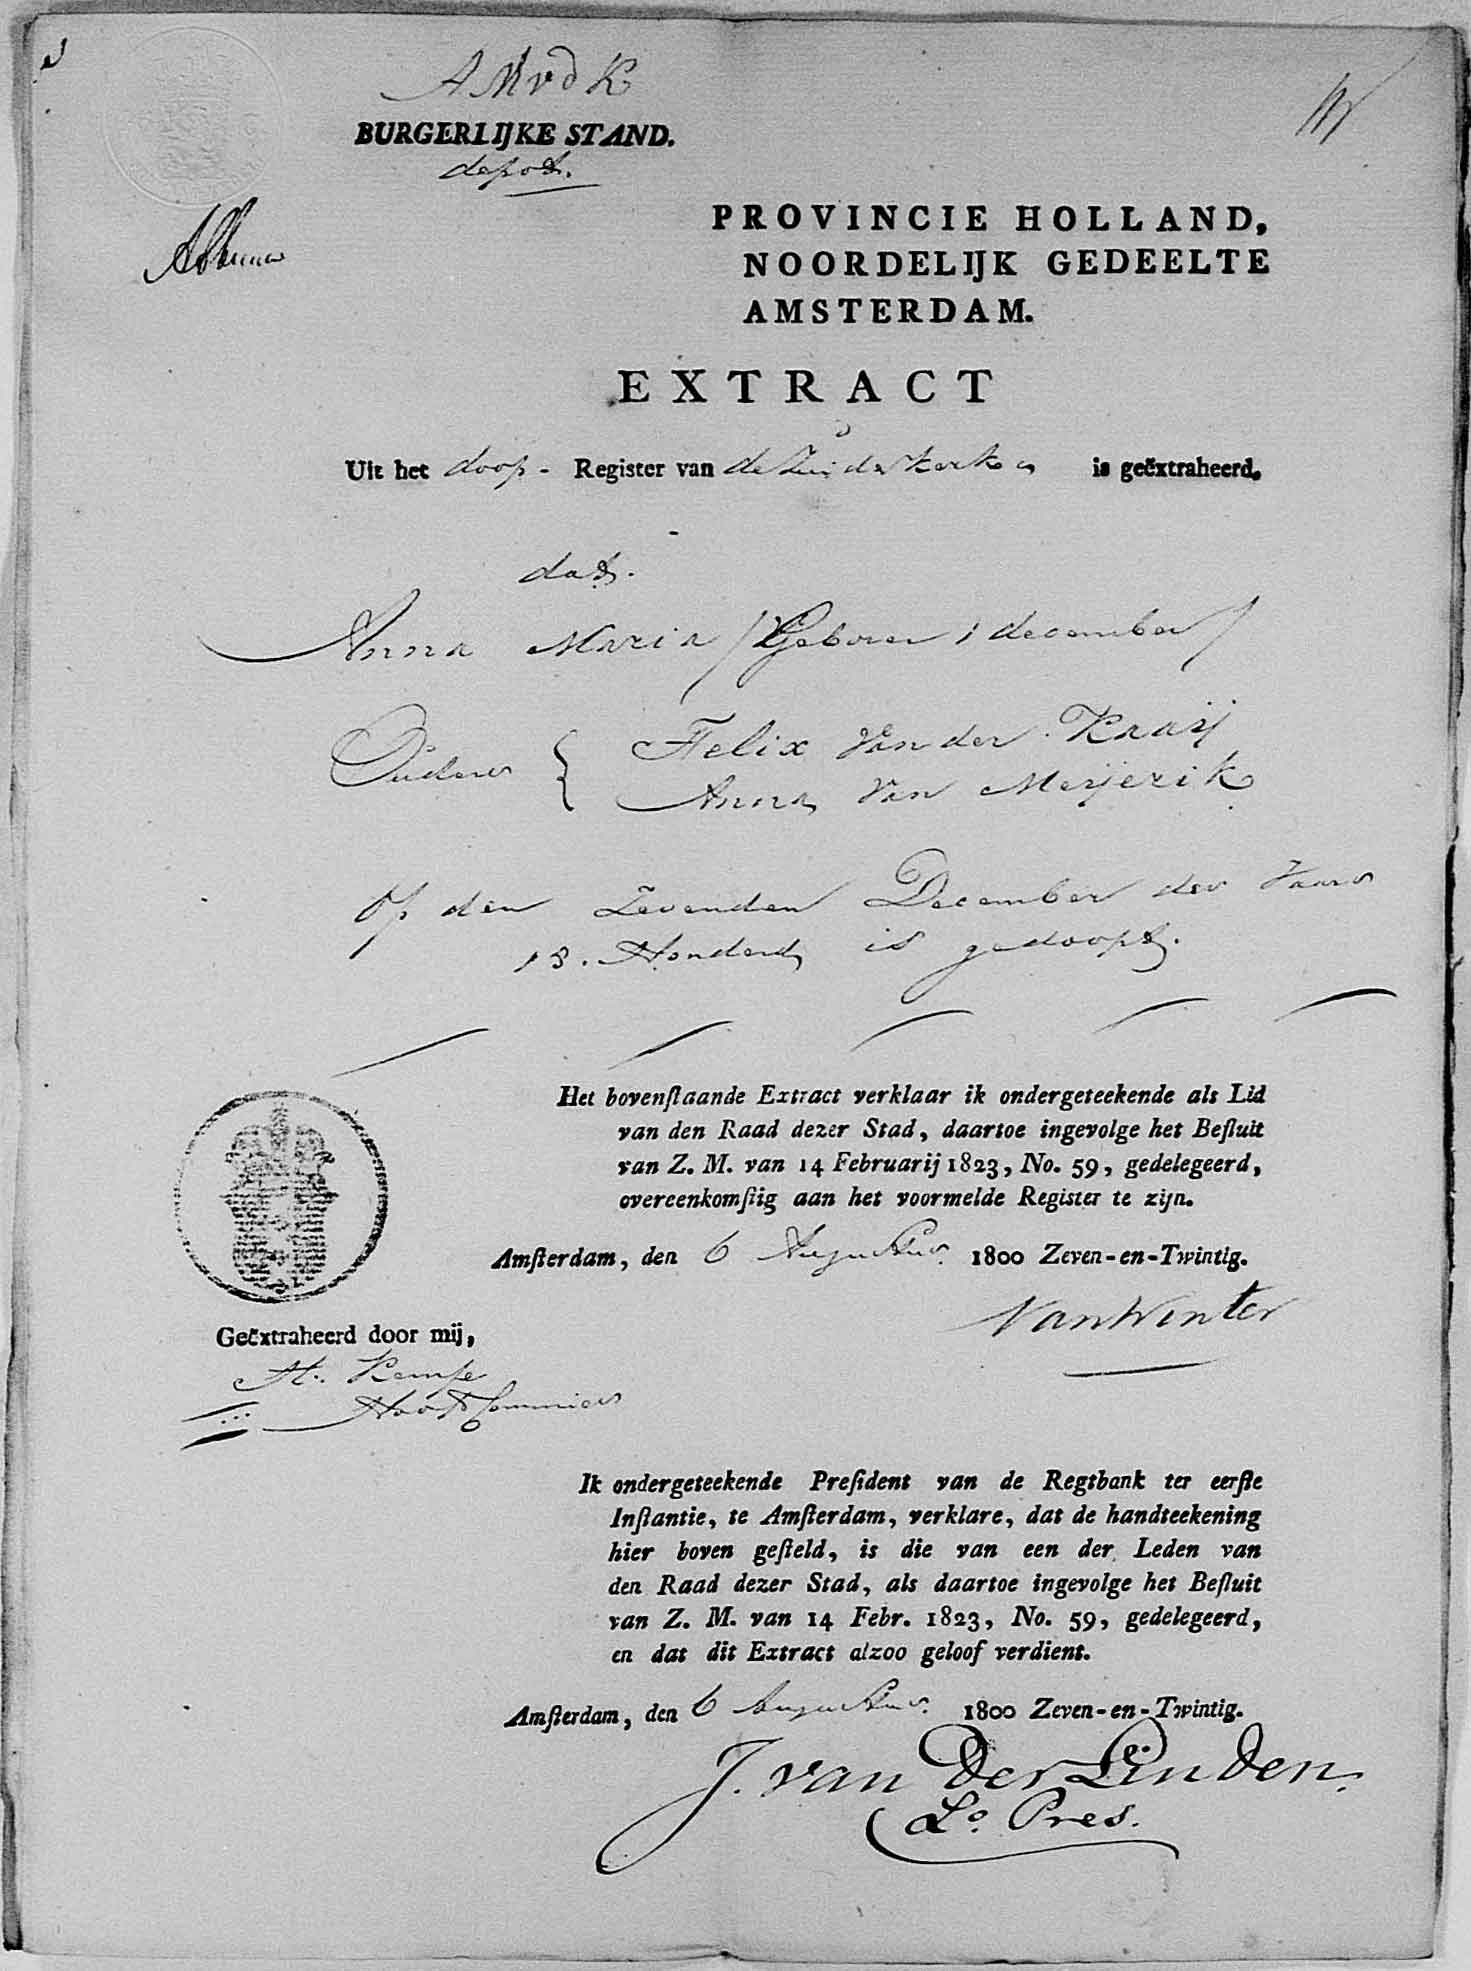 A M v d K
BURGERLIJKE STAND.
depot.
PROVINCIE HOLLAND,
NOORDELIJK GEDEELTE
AMSTERDAM.
EXTRACT
Uit het doop- Register van de Zuiderkerk is geëxtraheerd.
dat.
Anna Maria / Geboren 1 december /
Ouders { Felix Van der Kraaij
Anna Van Meijerik
Op den Zevenden December des Jaars
18. Honderd is gedoopt.
Het bovenſtaande Extract verklaar ik ondergeteekende als Lid
van den Raad dezer Stad, daartoe ingevolge het Beſluit
van Z. M. van 14 Februarij 1823, No. 59, gedelegeerd,
overeenkomſtig aan het voormelde Register te zijn.
Amſterdam, den 6 Augustus 1800 Zeven-en-Twintig.
Van Winter
Geëxtraheerd door mij,
H. Kempe
Hooft Commies
Ik ondergeteekende Preſident van de Regtbank ter eerſte
Inſtantie, te Amſterdam, verklare, dat de handteekening
hier boven geſteld, is die van een der Leden van
den Raad dezer Stad, als daartoe ingevolge het Beſluit
van Z. M. van 14 Febr. 1823, No. 59, gedelegeerd,
en dat dit Extract alzoo geloof verdient.
Amſterdam, den 6 Augustus. 1800 Zeven-en-Twintig.
J. van Der Linden.
Lo. Pres.